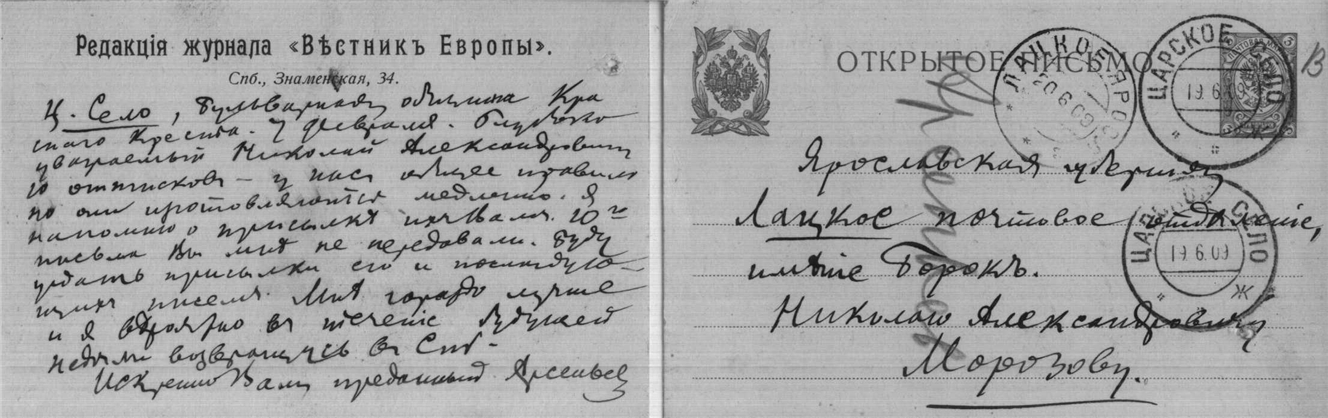 Редакція журнала «Вѣстникъ Европы».
Спб., Знаменская, 34.
Ц. Село, Бульварная, община Кра
снаго Креста. 7 февраля. Глубоко
уважаемый Николай Александровичъ
10 оттисковъ – у насъ общее правило
но они изготовляются медленно. Я
напомню о присылкѣ ихъ Вамъ. 10го
письма Вы мнѣ не передавали. Буду
ждать присылки его и послѣдую-
щихъ писемъ. Мнѣ гораздо лучше
и я вѣроятно въ теченіе будущей
недѣли возвращусь въ Спб.
Искренно Вамъ преданный Арсеньев
ОТКРЫТОЕ ПИСЬМО
ЦАРСКОЕ СЕЛО
19 6 09
ЛАЦКОЕ ЯРОС
20 6 09
Ярославская губернія
Лацкое почтовое отдѣленіе,
имѣніе Борокъ.
Николаю Александровичу
Морозову.
ЦАРСКОЕ СЕЛО
19 6 09
Ж